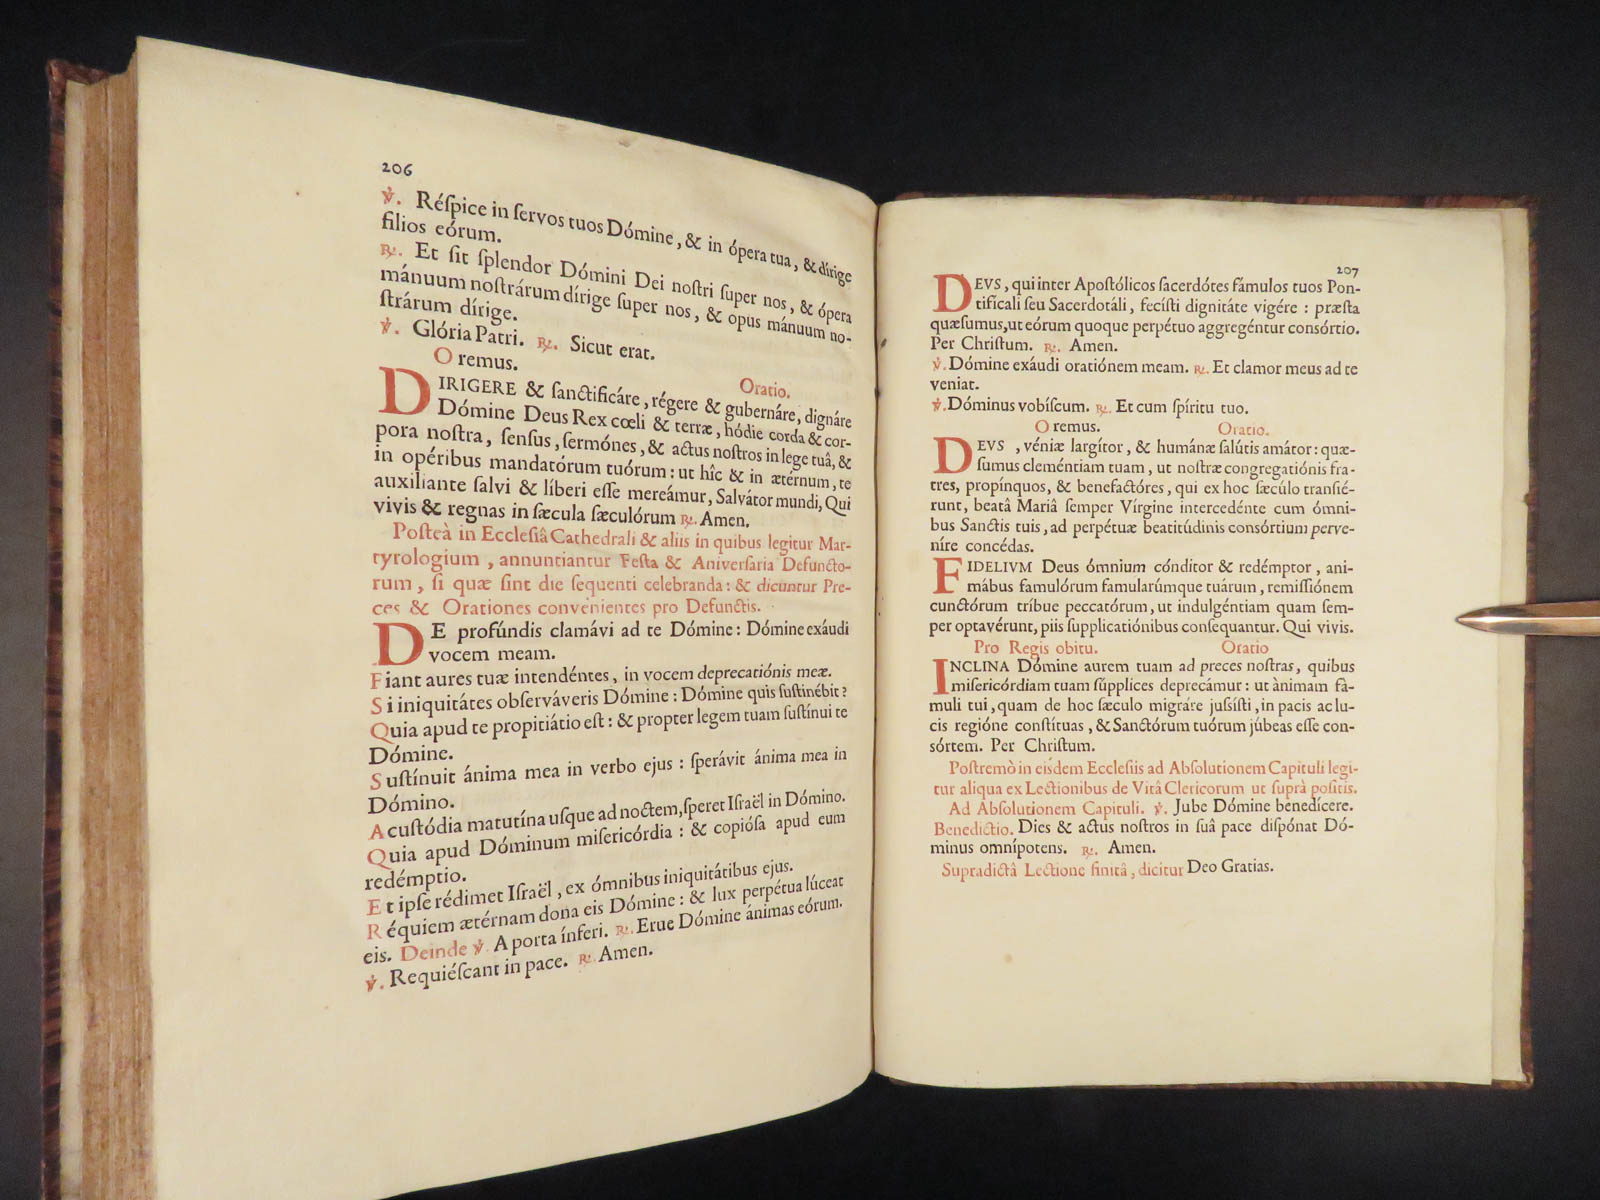 206
℣. Réſpice in ſervos tuos Dómine, & in ópera tua, & dírige
filios eórum.
℟. Et ſit ſplendor Dómini Dei noſtri ſuper nos, & ópera
mánuum noſtrárum dírige ſuper nos, & opus mánuum no-
ſtrárum dírige.
℣. Glória Patri. ℟. Sicut erat.
Oremus. Oratio.
DIRIGERE & ſanctificáre, régere & gubernáre, dignáre
Dómine Deus Rex cœli & terræ, hódie corda & cor-
pora noſtra, ſenſus, ſermónes, & actus noſtros in lege tuâ, &
in opéribus mandatórum tuórum: ut hîc & in ætérnum, te
auxiliante ſalvi & líberi eſſe mereámur, Salvátor mundi, Qui
vivis & regnas in ſæcula ſæculórum ℟. Amen.
Poſteà in Eccleſiâ Cathedrali & aliis in quibus legitur Mar-
tyrologium, annuntiantur Feſta & Aniverſaria Defuncto-
rum, ſi quæ ſint die ſequenti celebranda: & dicuntur Pre-
ces & Orationes convenientes pro Defunctis.
DE profúndis clamávi ad te Dómine: Dómine exáudi
vocem meam.
Fiant aures tuæ intendéntes, in vocem deprecatiónis meæ.
Si iniquitátes obſerváveris Dómine: Dómine quis ſuſtinébit?
Quia apud te propitiátio eſt: & propter legem tuam ſuſtínui te
Dómine.
Suſtínuit ánima mea in verbo ejus: ſperávit ánima mea in
Dómino.
A cuſtódia matutína uſque ad noctem, ſperet Iſraël in Dómino.
Quia apud Dóminum miſericórdia: & copióſa apud eum
redémptio.
Et ipſe rédimet Iſraël, ex ómnibus iniquitátibus ejus.
Réquiem ætérnam dona eis Dómine: & lux perpétua lúceat
eis. Deinde ℣. A porta ínferi. ℟. Erue Dómine ánimas eórum.
℣. Requiéſcant in pace. ℟. Amen.
207
DEVS, qui inter Apoſtólicos ſacerdótes fámulos tuos Pon-
tificali ſeu Sacerdotáli, feciſti dignitáte vigére: præſta
quæſumus, ut eórum quoque perpétuo aggregéntur conſórtio.
Per Chriſtum. ℟. Amen.
℣. Dómine exáudi oratiónem meam. ℟. Et clamor meus ad te
veniat.
℣. Dóminus vobíſcum. ℟. Et cum ſpíritu tuo.
Oremus. Oratio.
DEVS, véniæ largítor, & humánæ ſalútis amátor: quæ-
ſumus cleméntiam tuam, ut noſtræ congregatiónis fra-
tres, propínquos, & benefactóres, qui ex hoc ſæcúlo tranſié-
runt, beatâ Mariâ ſemper Vírgine intercedénte cum ómni-
bus Sanctis tuis, ad perpétuæ beatitúdinis conſórtium perve-
níre concédas.
FIDELIVM Deus ómnium cónditor & redémptor, ani-
mábus famulórum famularúmque tuárum, remiſſiónem
cunctórum tríbue peccatórum, ut indulgéntiam quam ſem-
per optavérunt, piis ſupplicatiónibus conſequantur. Qui vivis.
Pro Regis obitu. Oratio
INCLINA Dómine aurem tuam ad preces noſtras, quibus
miſericórdiam tuam ſúpplices deprecámur: ut ànimam fà-
muli tui, quam de hoc ſæculo migráre juſſiſti, in pacis ac lu-
cis regióne conſtítuas, & Sanctórum tuórum júbeas eſſe con-
sórtem. Per Chriſtum.
Poſtremò in eiſdem Eccleſiis ad Abſolutionem Capituli legi-
tur aliqua ex Lectionibus de Vitâ Clericorum ut ſuprà poſitis.
Ad Abſolutionem Capituli. ℣. Jube Dómine benedícere.
Benedictio. Dies & actus noſtros in ſuâ pace diſpónat Dó-
minus omnípotens. ℟. Amen.
Supradictâ Lectione finitâ, dicitur Deo Gratias.